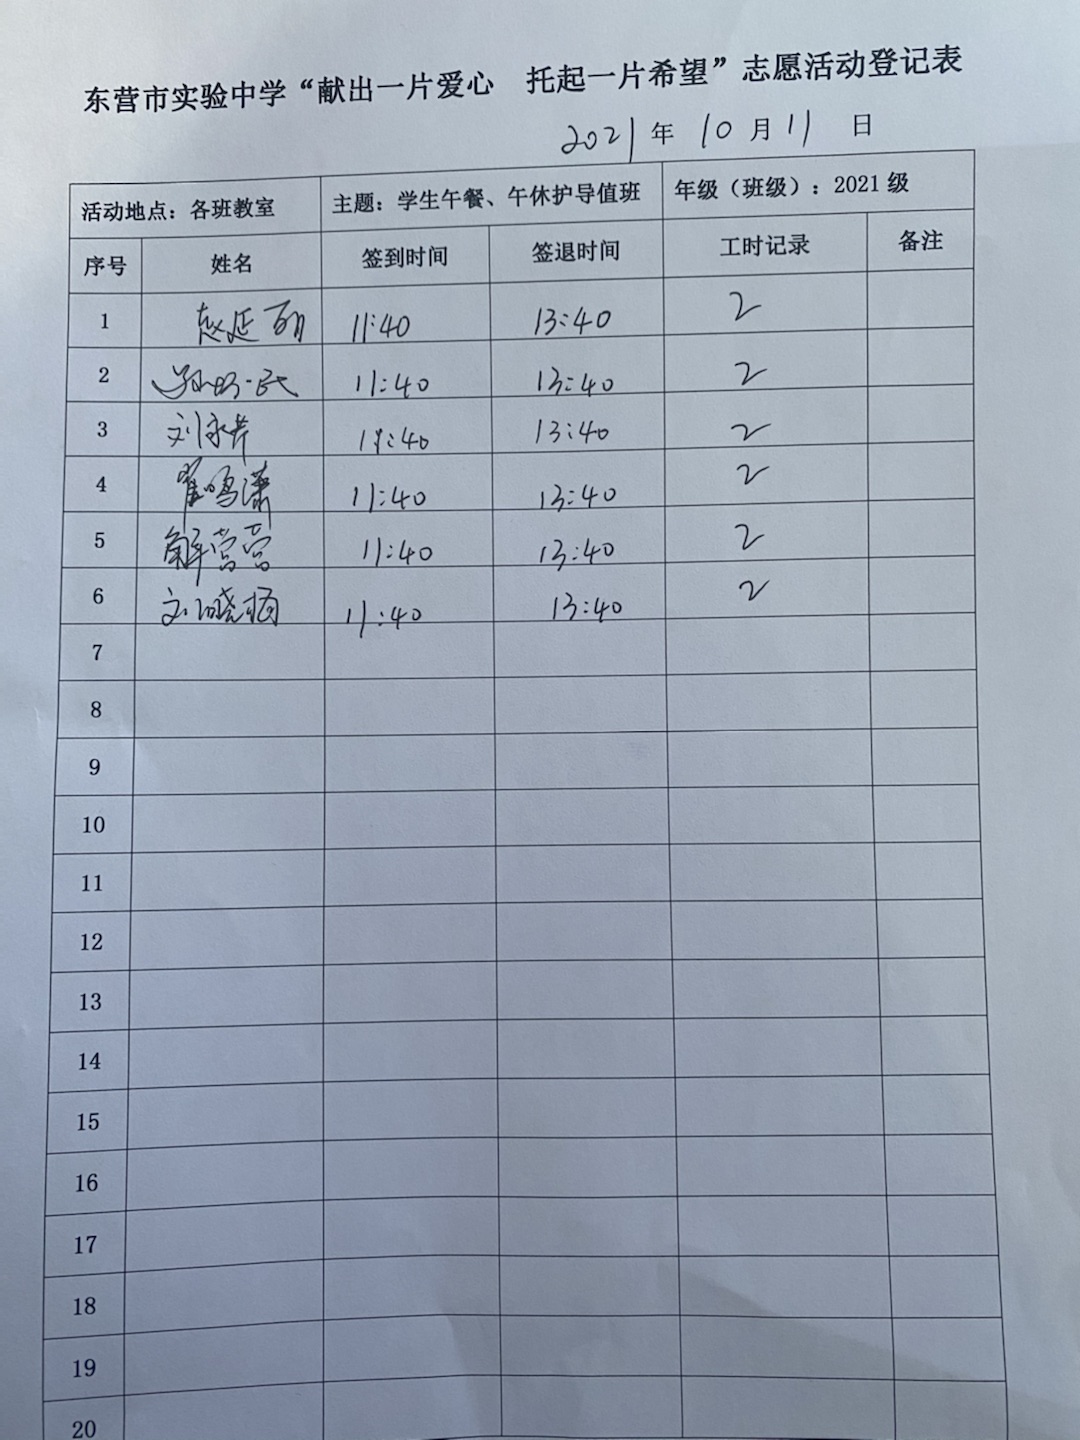 东营市实验中学“献出一片爱心 托起一片希望”志愿活动登记表
2021年10月11日
活动地点：各班教室 主题：学生午餐、午休护导值班 年级（班级）：2021级
序号 姓名 签到时间 签退时间 工时记录 备注
1 赵延 11:40 13:40 2
2 11:40 13:40 2
3 刘永芹 11:40 13:40 2
4 翟鸣潇 11:40 13:40 2
5 解营营 11:40 13:40 2
6 刘晓梅 11:40 13:40 2
7
8
9
10
11
12
13
14
15
16
17
18
19
20